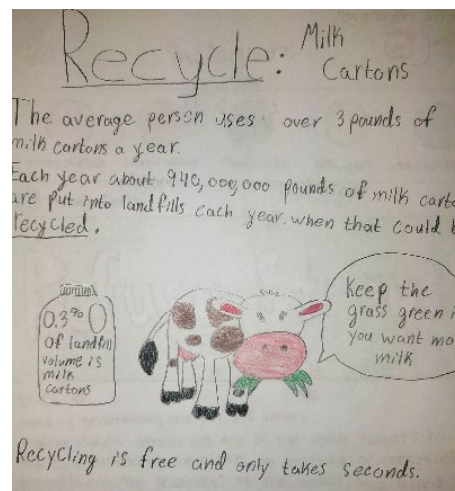 Recycle: Milk
Cartons
The average person uses over 3 pounds of
milk cartons a year.
Each year about 940,000,000 pounds of milk carto
are put into landfills each year, when that could b
recycled.
0.3%
of landfill
volume is
milk
cartons
Keep the
grass green i
you want mo
milk
Recycling is free and only takes seconds.